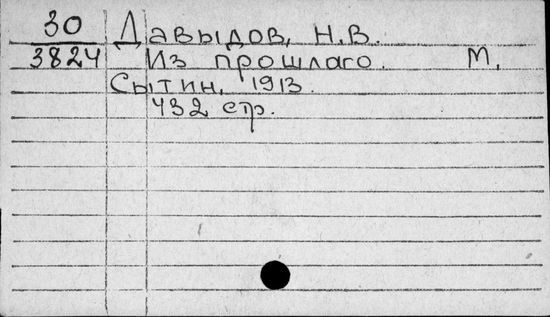 30 Давыдов, Н.В.
3824 Из прошлаго. М,
Сытин, 1913.
432 стр.